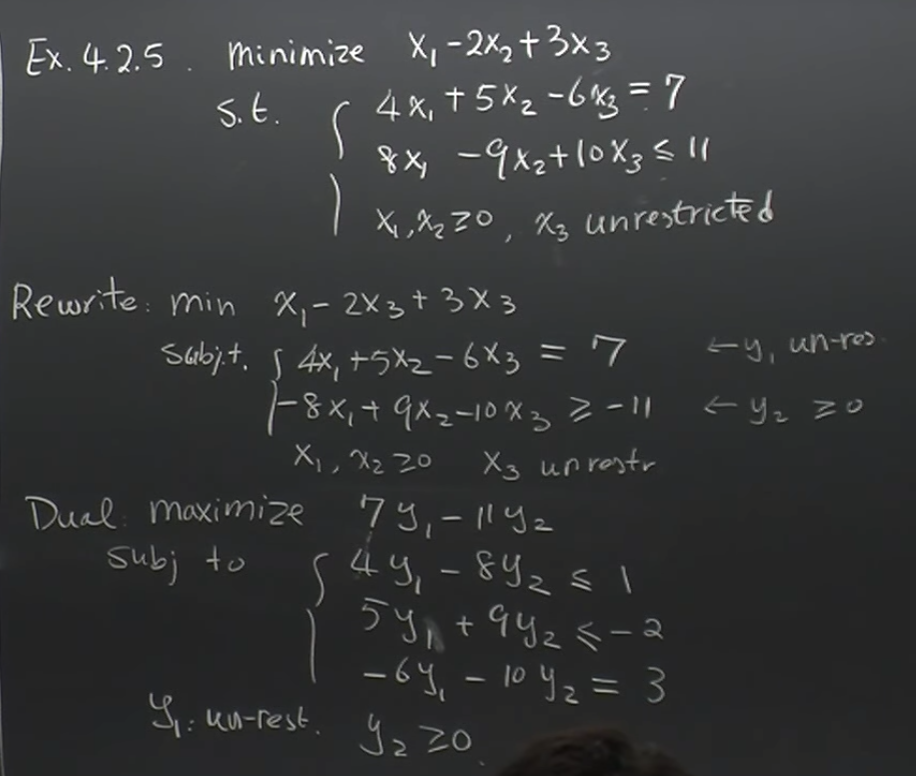 Ex. 4.2.5. minimize x₁ - 2x₂ + 3x₃
s.t. { 4x₁ + 5x₂ - 6x₃ = 7
8x₁ - 9x₂ + 10x₃ ≤ 11
x₁, x₂ ≥ 0, x₃ unrestricted
Rewrite: min x₁ - 2x₃ + 3x₃
Subj.t. { 4x₁ + 5x₂ - 6x₃ = 7 ← y₁ un-res.
-8x₁ + 9x₂ - 10x₃ ≥ -11 ← y₂ ≥ 0
x₁, x₂ ≥ 0 x₃ unrestr
Dual: maximize 7y₁ - 11y₂
Subj to { 4y₁ - 8y₂ ≤ 1
5y₁ + 9y₂ ≤ -2
-6y₁ - 10y₂ = 3
y₁: un-rest. y₂ ≥ 0.